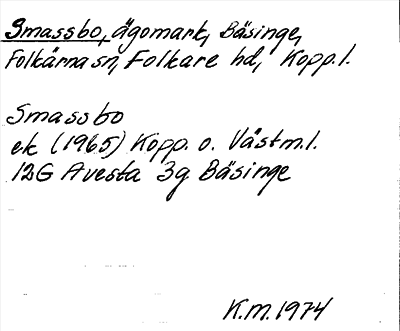 Smassbo, ägomark, Bäsinge,
Folkärna sn, Folkare hd, Kopp. l.
Smassbo
ek (1965) Kopp. o. Västm. l.
12G Avesta 3g Bäsinge
K.M. 1974